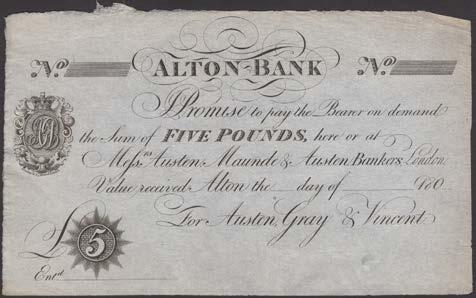 No. ALTON-BANK No.
I Promise to pay the Bearer on demand
the Sum of FIVE POUNDS, here or at
Messrs Austen, Maunde & Austen, Bankers, London.
Value received Alton the day of 180
For Austen, Gray & Vincent
£ 5
Entd